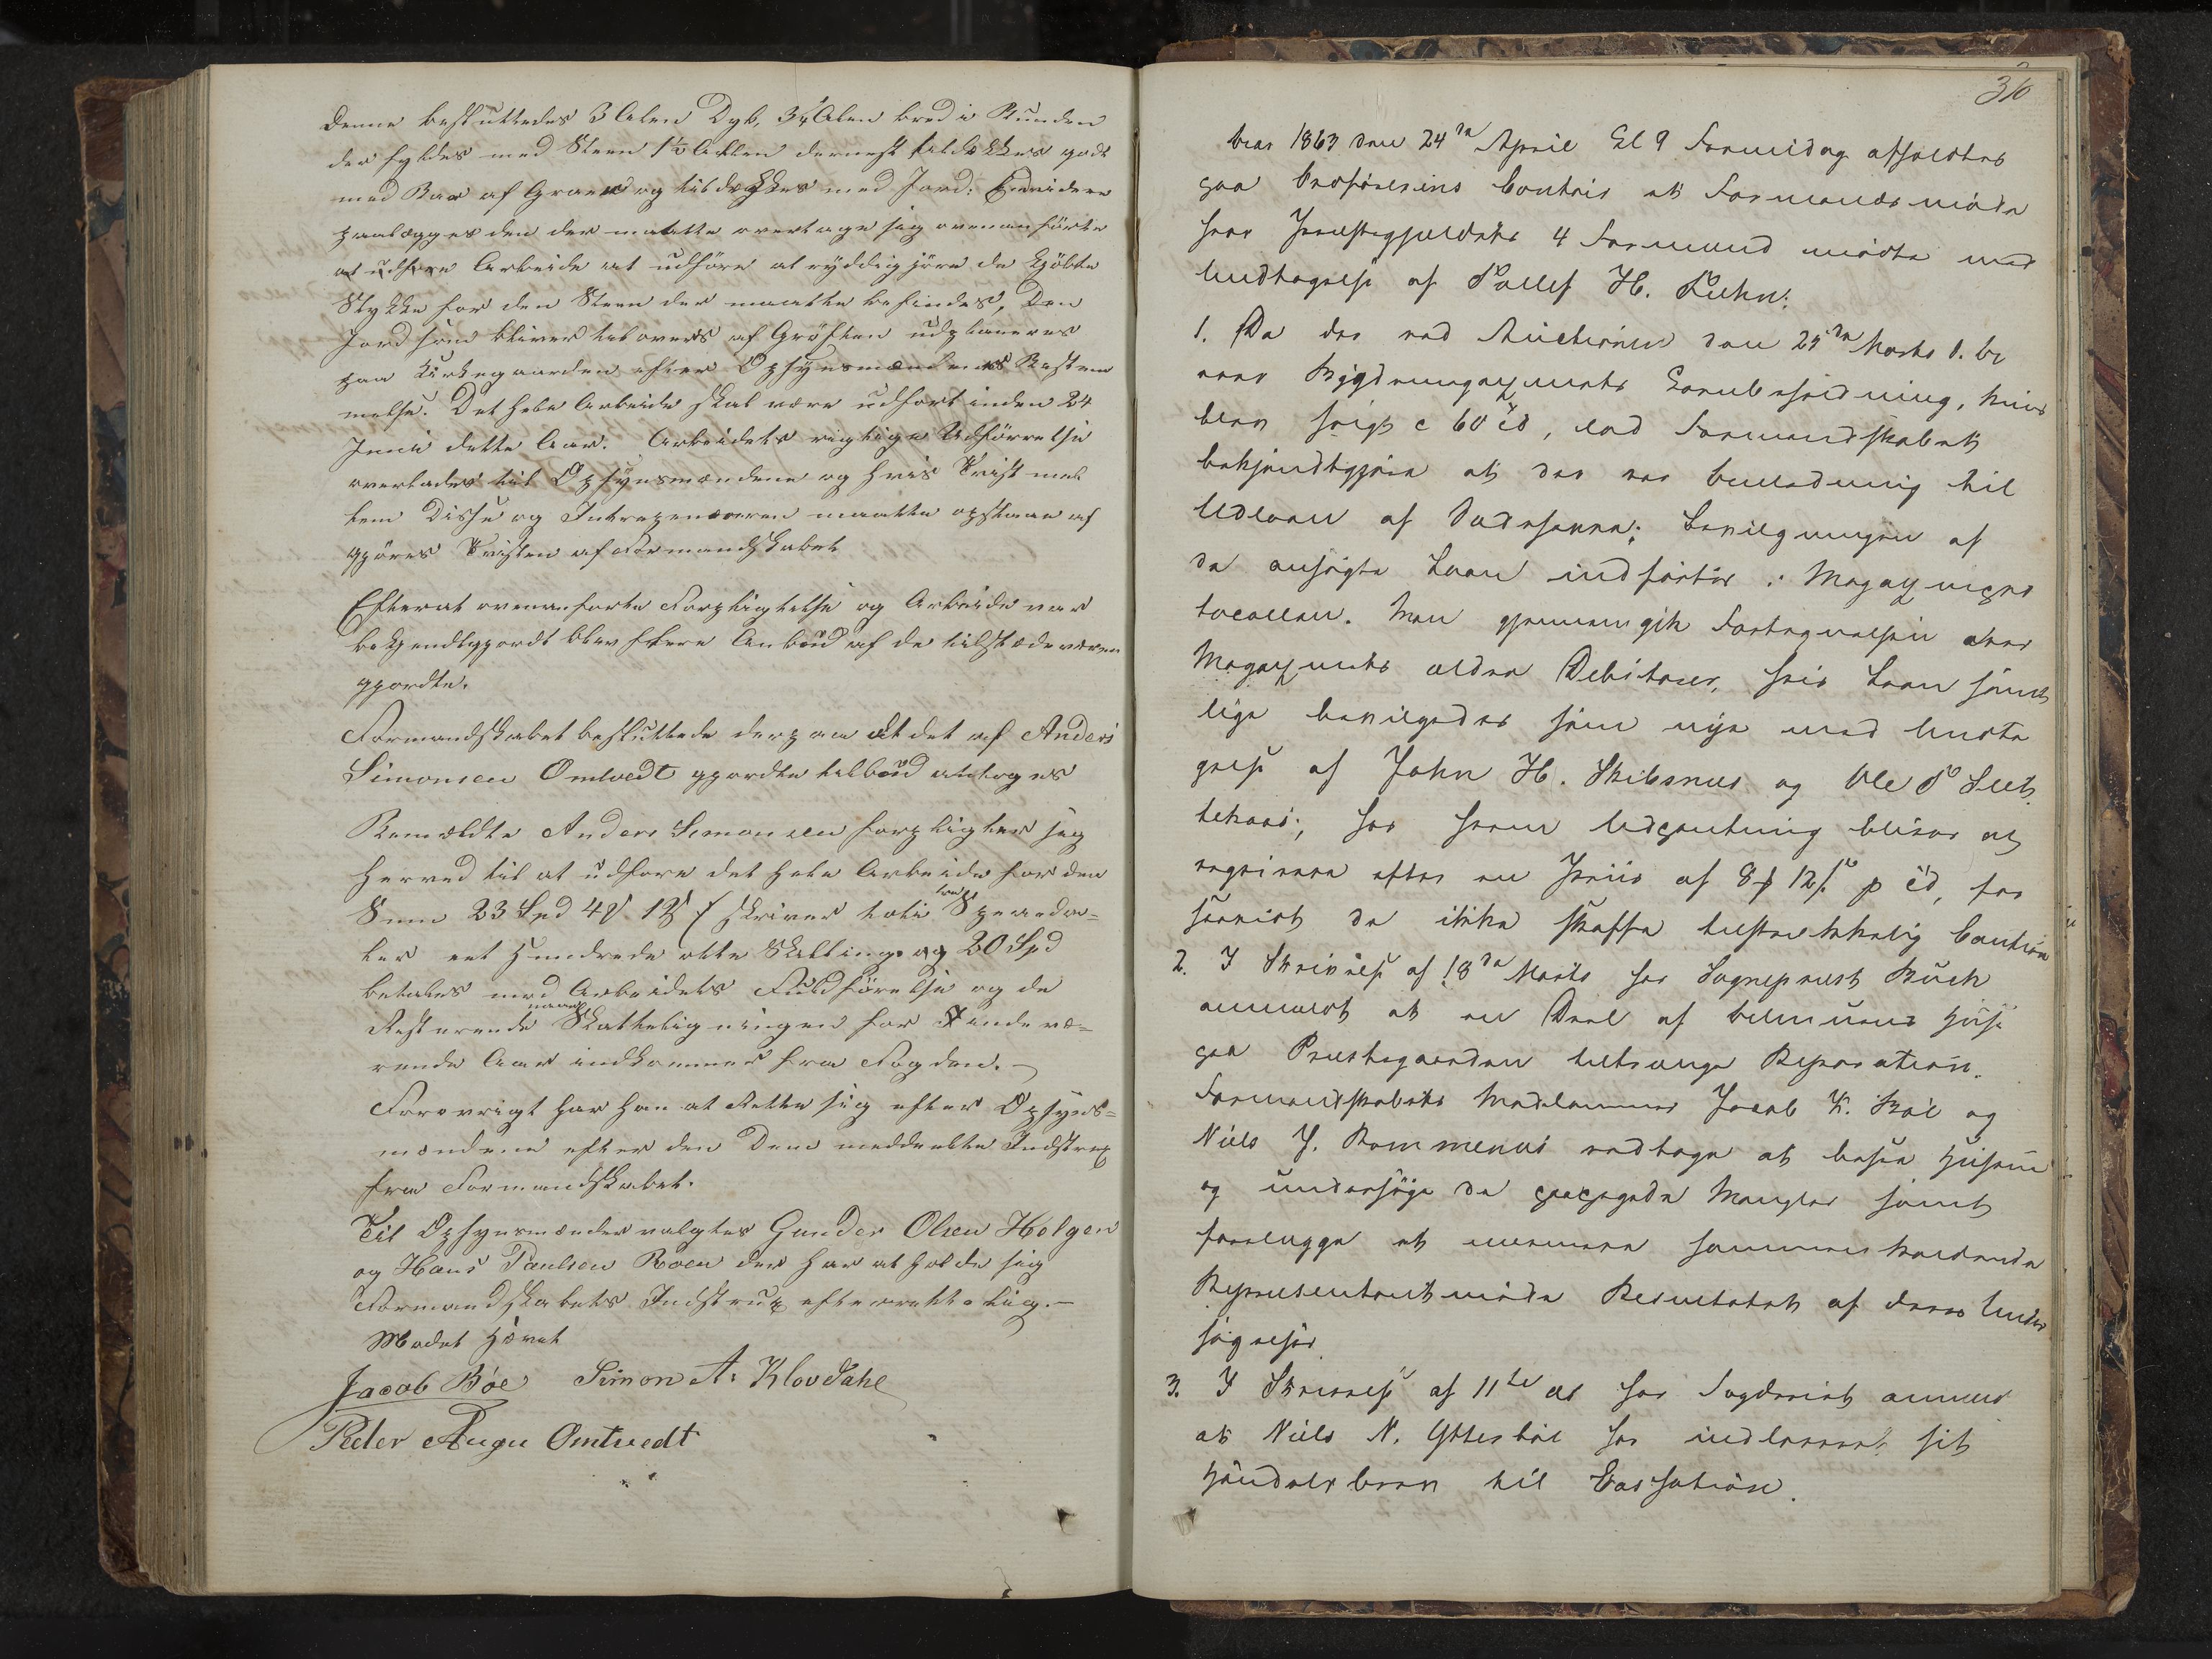 denne besluttedes 3 Alen Dyb, 3¼ Alen bred i Bunden
der fyldes med Steen 1½ Allen dernest tildækkes godt
med Bar af Graner og tildækkes med Jord: Endvidere
paalægges den der maatte overtage sig ovenanførte
at udføre Arbeide at udføre at ryddiggjøre de kjøbte
Stykke for den Steen der maatte befindes, Den
Jord som bliver tilovers af Grøften udplaneres
paa Kirkegaarden efter Opsynsmændenes Bestem
melse. Det hele Arbeide skal være udført inden 24
Juni dette Aar. Arbeidets rigtige Udførrelse
overlades til Opsynsmændene og hvis Tvist mel
lem Disse og Entreprenøren maatte opstaae af
gjøres Tvisten af Formandskabet
Efterat ovenanførte Forpligtelse og Arbeide var
bekjendtgjordt blev flere Anbud af de tilstædeværen
gjordte.
Formandskabet besluttede derpaa at det af Anders
Simonsen Omtvedt gjordte tilbud antoges
Bemældte Anders Simonsen forpligter sig
herved til at udføre det hele Arbeide for den
Sum 23 Spd 4 18 skriver toti tre Speceda=
ler eet Hundrede otte Skilling og 20 Spd
betales med Arbeidets Fuldførelse og de
Resterende naar Skatteligningen for Indevæ=
rende Aar indkommer fra Fogden. –
Forøvrigt har han at Rette sig efter Opsyns=
mændene efter den Dem meddeelte Indstrux
fra Formandskabet.
Til Opsynsmænder valgtes Gunder Olsen Holgen
og Hans Paulsen Roen der har at holde sig
Formandskabets Indstrux efterrettelig. –
Mødet Hævet
Jacob Bøe Simon A. Klovdahl
Peder Augu Omtvedt
36
Aar 1863 den 24de April Kl 9 Formidag afholdtes
paa Proforerens Contoir et Formandsmøde
hvor Præstegjældets 4 Formænd mødte med
Undtagelse af Tollef H. Kuhn:
1. Da der ved Auctionen den 25de Marts d. A
over Bygdemagazinets Kornbeholdning, hvis
blev solgt c 60 Td, lod Formandskabet
bekjendtgjøre at der var Anledning til
Udlaan af Sædehavre; Bevilgningen af
de ansøgte Laan indførtes i Magazinspro
tocollen. Man gjennemgik Fortegnelsen over
Magazinets ældre Debitorer, hvis Laan samt
lige bevilgedes som nye med Undta
gelse af John H. Skibsnes og Ole T Slet
tekaas; for hvem Udpantning bliver at
reqvirere efter en Priis af 8 12 p Td, for
saavidt de ikke skaffe tilstrækkelig Caution
2. I Skrivelse af 18de Marts har Sogneprest Buch
anmeldt at en Deel af Almuens Huse
paa Præstegaarden tiltrænge Reparation.
Formandskabets Medlemmer Jacob K. Bøe og
Niels J. Rommenæs vedtoge at besee Husene
og undersøge de paapegede Mangler samt
forelægge et nærmere sammenkaldende
Repræsentantmøde Resultatet af deres Under
søgelser
3. I Skrivelse af 11te ds har Fogderiet anmeldt
at Niels N. Ytterbøe har indleveret sit
Handelsbrev til Cassation.